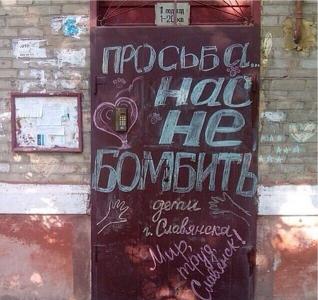 1 подъезд
1-20 кв.
ПРОСЬБА...
нас
не
БОМБИТЬ
дети
г. Славянска
Мир,
труд,
Славянск!